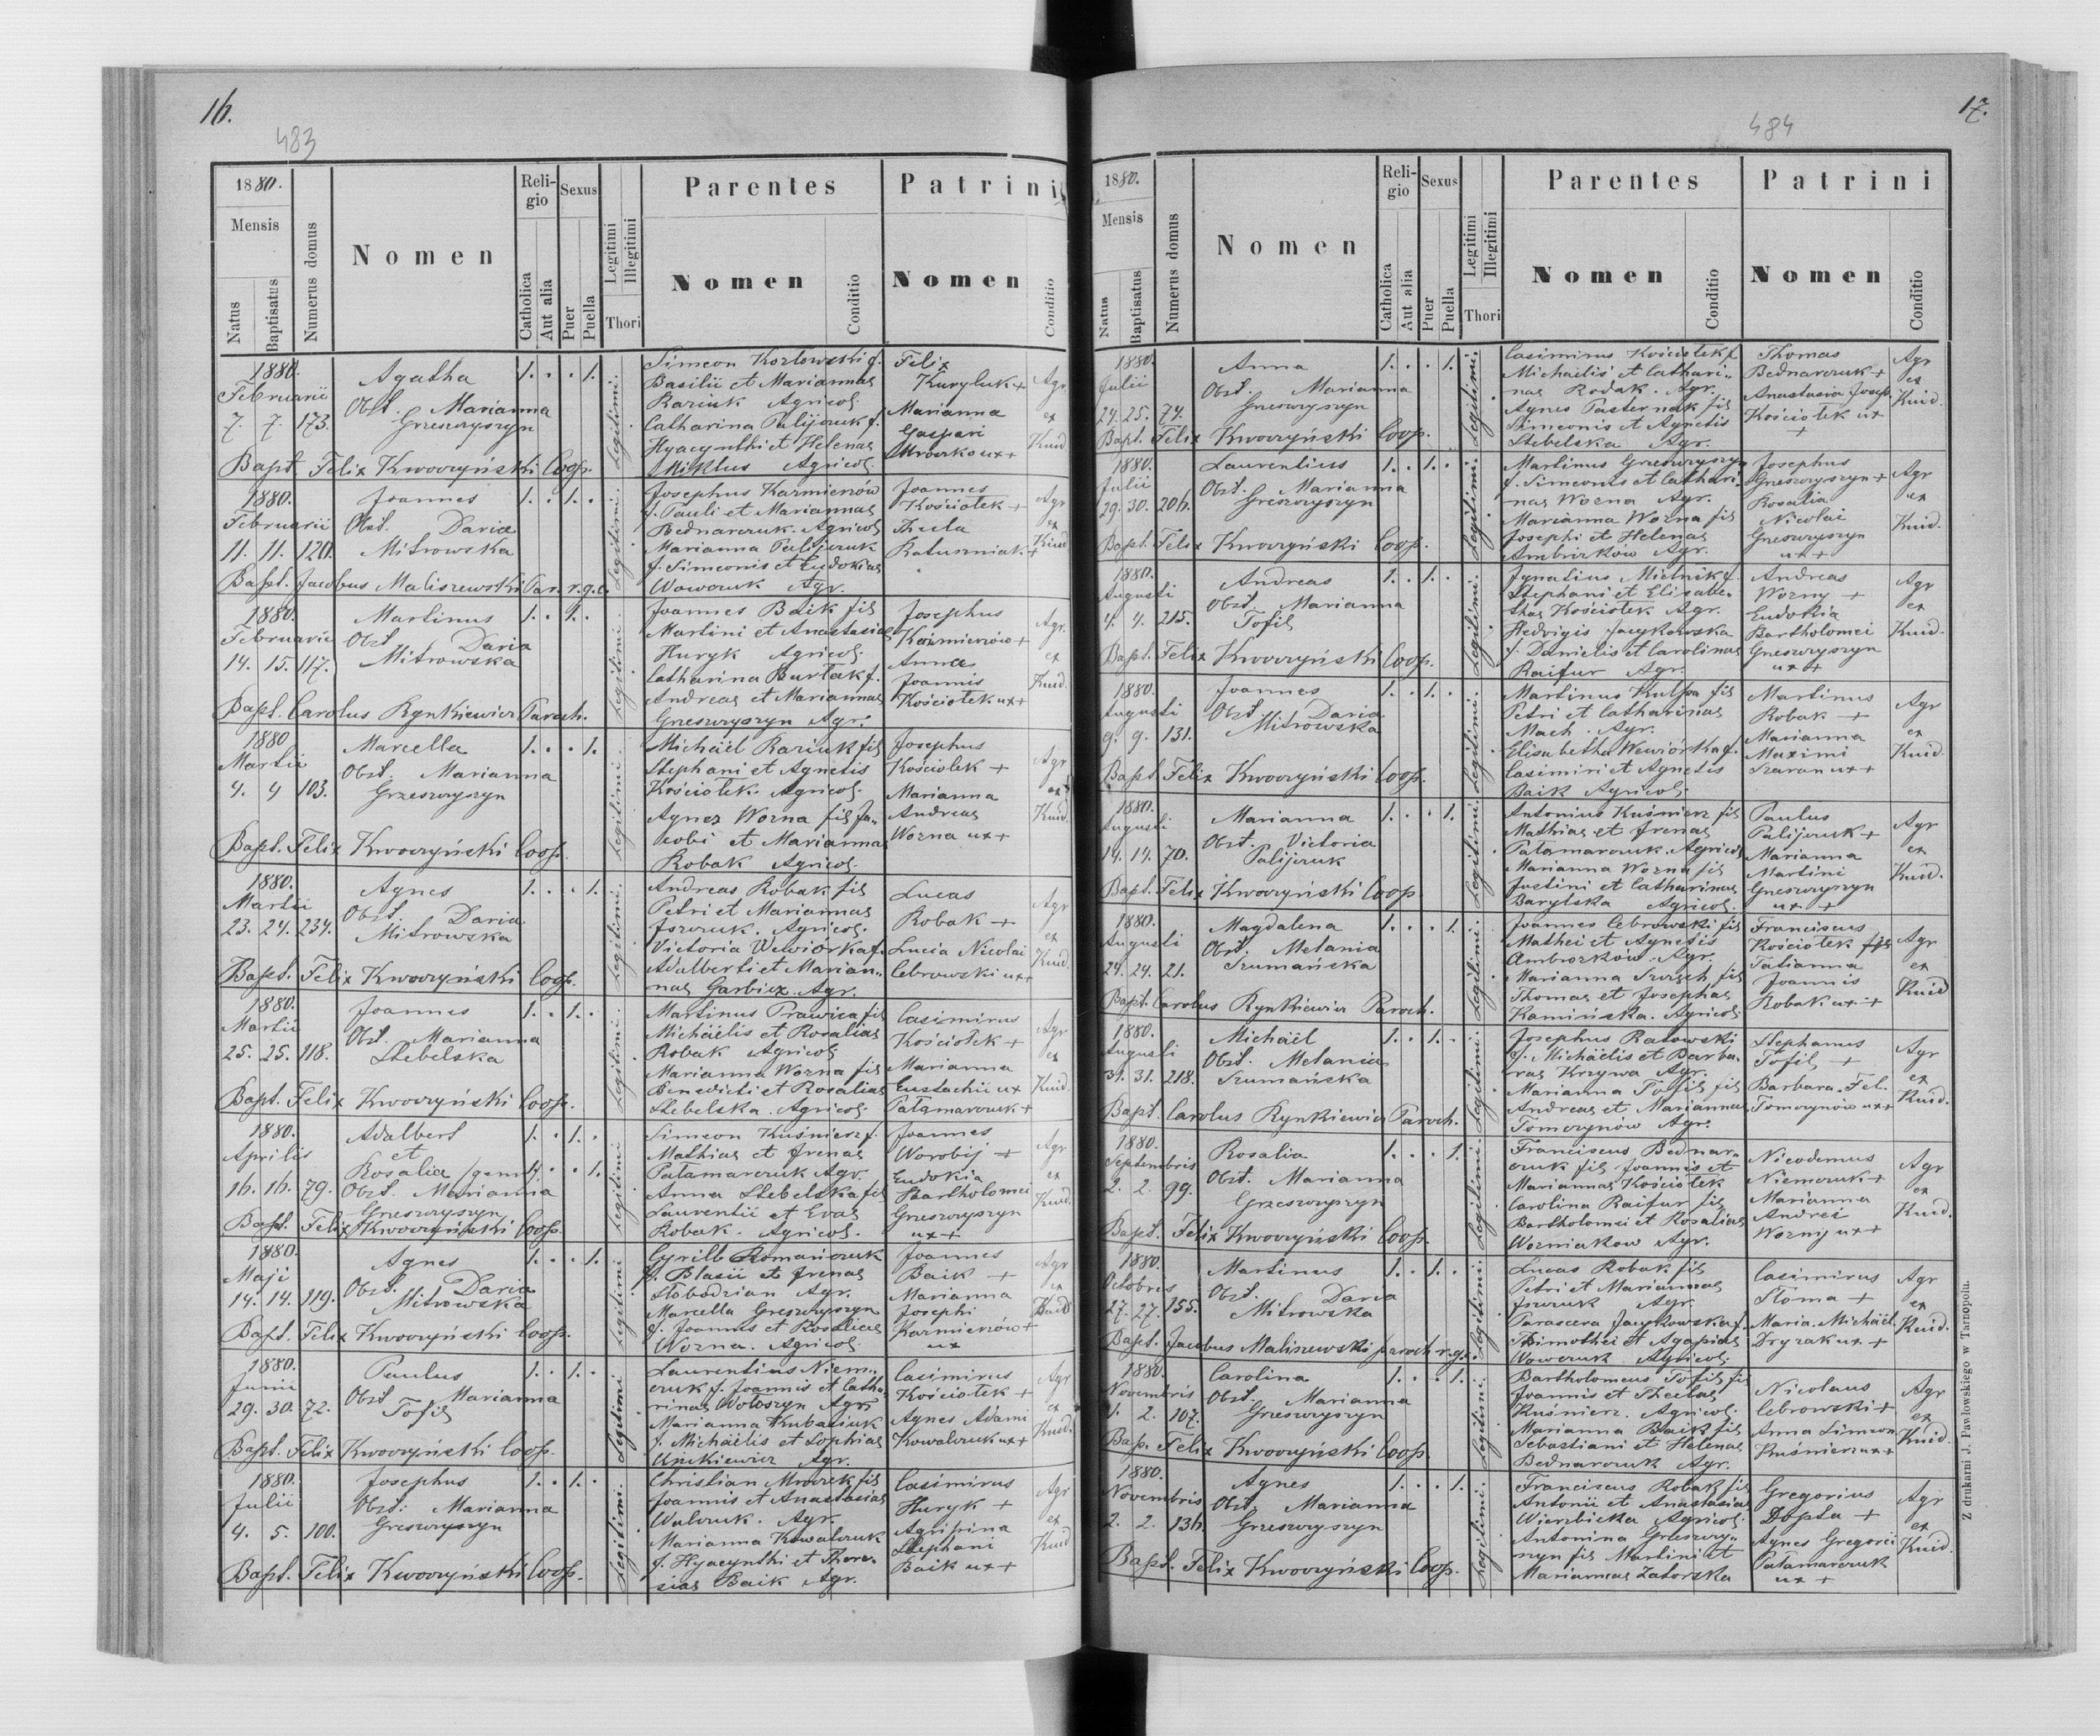 16.
483
1880.
Mensis
Natus
Baptisatus
Numerus domus
Nomen
Religio
Catholica
Aut alia
Sexus
Puer
Puella
Legitimi
Illegitimi
Thori
Parentes
Nomen
Conditio
Patrini
Nomen
Conditio
1880. Februarii 7. 7. 173.
Agatha
Obst. Marianna
Grzeszczyszyn
1. . . 1.
Legitimi.
Simeon Kozlowski f.
Basilii et Mariannae
Agricol.
Catharina Palijczuk f.
Hyacynthi et Helenae
Miklus Agricol.
Felix
Kuryluk +
Marianna
Gaspari
ux +
Agr
et
Bapt Felix Kwoczyński Coop.
1880. Februarii 11. 11. 120.
Joannes
Obst. Daria
Mitrowska
1. . 1. .
Legitimi.
Josephus Kazmierzów
f. Pauli et Mariannae
Bednarczuk. Agricol
Marianna Palijczuk
f. Simeonis et Eudokiae
Wowczuk Agr.
Joannes
Kościołek +
Thecla
Agr
et
Bapt. Jacobus Maliszewski Par. r. g. c.
1880. Februarii 14. 15. 117.
Martinus
Obst Daria
Mitrowska
1. . 1. .
Legitimi.
Joannes Baik fil
Martini et Anastasiae
Huryk Agricol.
Catharina Burtak f.
Andreae et Mariannae
Greszczyszyn Agr.
Josephus
Kaźmierzów +
Anna
Joannis
Kościołek ux +
Agr.
et
Bapt. Carolus Rynkiewicz Paroch.
1880 Martii 4. 4 103.
Marcella
Obst. Marianna
Grzeszczyszyn
1. . . 1.
Legitimi.
Michaël Raziuk fil
Stephani et Agnetis
Kościołek. Agricol.
Agnes Wozna fil Ja-
cobi et Mariannae
Robak Agricol.
Josephus
Kościolek +
Marianna
Andreae
Wozna ux +
Agr
et
Bapt. Felix Kwoczyński Coop.
1880. Martii 23. 24. 234.
Agnes
Obst. Daria
Mitrowska
1. . . 1.
Legitimi.
Andreas Robak fil
Petri et Mariannae
Agricol.
Victoria Wewiorka f.
Adalberti et Marian-
nae Garbicz. Agr.
Lucas
Robak +
Lucia Nicolai
Cebrowski ux +
Agr
et
Bapt. Felix Kwoczyński Coop.
1880. Martii 25. 25. 118.
Joannes
Obst. Marianna
Stebelska
1. . 1. .
Legitimi.
Martinus Prawica fil
Michäelis et Rosaliae
Robak Agricol
Marianna Wozna fil
Benedicti et Rosaliae
Stebelska. Agricol.
Casimirus
Kościołek +
Marianna
Eustachii ux
Patamarczuk +
Agr
et
Bapt. Felix Kwoczyński Coop.
1880. Aprilis 16. 16. 79.
Adalbert
et
Rosalia
Obst. Marianna
Greszczyszyn
1. . 1. .
1. . . 1.
Legitimi.
Simeon Kuśnierz f.
Mathiae et Irenae
Patamarczuk Agr.
Anna Stebelska fil
Laurentii et Evae
Robak. Agricol.
Joannes
Worobij +
Eudokia
Bartholomei
Greszczyszyn
ux +
Agr
et
Bapt. Felix Kwoczyński Coop.
1880. Maji 14. 14. 119.
Agnes
Obst. Daria
Mitrowska
1. . . 1.
Legitimi
Cyrill Romańczuk
f. Blasii et Irenae
Słobodzian Agr.
Marcella Greszczyszyn
f. Joannis et Rosaliae
Wozna. Agricol.
Joannes
Baik +
Marianna
Josephi
Kazmierzów +
ux
Agr
et
Bapt. Felix Kwoczyński Coop.
1880. Junii 29. 30. 72.
Paulus
Obst Marianna
Tofil
1. . 1. .
Legitimi
Laurentius Niem-
czuk f. Joannis et Catha-
rinae Wołoszyn Agr
Marianna
f. Michäelis et Sophiae
Agr.
Casimirus
Kościołek +
Agnes Adami
Kowalczuk ux +
Agr
et
Bapt. Felix Kwoczyński Coop.
1880. Julii 4. 5. 100.
Josephus
Obst. Marianna
Greszczyszyn
1. . 1. .
Legitimi.
Christian Mroczek fil
Joannis et Anastasiae
Agr.
Marianna Kowalczuk
f. Hyacynthi et There-
siae Baik Agr.
Casimirus
Huryk +
Agripina
Stephani
Baik ux +
Agr
et
Bapt. Felix Kwoczyński Coop.
17.
484
1880.
Mensis
Natus
Baptisatus
Numerus domus
Nomen
Religio
Catholica
Aut alia
Sexus
Puer
Puella
Legitimi
Illegitimi
Thori
Parentes
Nomen
Conditio
Patrini
Nomen
Conditio
1880. Julii 24. 25. 74.
Anna
Obst. Marianna
Greszczyszyn
1. . . 1.
Legitimi.
Casimirus Kościołek f
Michaelis et Cathari-
nae Rodak. Agr.
Agnes Pasternak fil
Simeonis et Agnetis
Stebelska Agr.
Thomas
Bednarczuk +
Anastasia Joseph.
Kościołek ux
+
Agr
et
Bapt. Felix Kwoczyński Coop.
1880. Julii 29. 30. 206.
Laurentius
Obst. Marianna
Greszczyszyn
1. . 1. .
Legitimi.
Martinus Greszczyszyn
f. Simeonis et Cathari-
nae Wozna Agr.
Marianna Wozna fil
Josephi et Helenae
Ambrozków Agr.
Josephus
Greszczyszyn +
Rosalia
Nicolai
Greszczyszyn
ux +
Agr
Bapt. Felix Kwoczyński Coop.
1880. Augusti 4. 4. 215.
Andreas
Obst. Marianna
Tofil
1. . 1. .
Legitimi.
Ignatius Mielnik f.
Stephani et Elisabe-
thae Kościołek Agr.
Hedvigis Jacykowska
f. Danielis et Carolinae
Raifur Agr.
Andreas
Wozny +
Eudokia
Bartholomei
Greszczyszyn
ux +
Agr
et
Bapt. Felix Kwoczyński Coop.
1880. Augusti 9. 9. 131.
Joannes
Obst Daria
Mitrowska
1. . 1. .
Legitimi.
Martinus Kulpa fil
Petri et Catharinae
Mach. Agr.
Elisabetha Wewiórka f.
Casimiri et Agnetis
Baik Agricol.
Martinus
Robak +
Marianna
Maximi
Szaran ux +
Agr
et
Bapt. Felix Kwoczyński Coop.
1880. Augusti 14. 14. 70.
Marianna
Obst. Victoria
Palijczuk
1. . . 1.
Legitimi.
Antonius Kuśnierz fil
Mathiae et Irenae
Patamarczuk. Agricol
Marianna Wozna fil
Justini et Catharinae
Barylska Agricol.
Paulus
Palijczuk +
Marianna
Martini
Greszczyszyn
ux +
Agr
et
Bapt. Felix Kwoczyński Coop
1880. Augusti 24. 24. 21.
Magdalena
Obst. Melania
Szumańska
1. . . 1.
Legitimi.
Joannes Cebrowski fil
Mathei et Agnetis
Ambrozków. Agr.
Marianna fil
Thomae et Josephae
Kamińska. Agricol.
Franciscus
Kościołek
Tatianna
Joannis
Robak ux +
Agr
et
Bapt. Carolus Rynkiewicz Paroch.
1880. Augusti 31. 31. 218.
Michaël
Obst. Melania
Szumańska
1. . 1. .
Legitimi.
Josephus Ratowski
f. Michäelis et Barba-
rae Krzywa Agr.
Marianna Tofil fil
Andreae et Mariannae
Tomczynów Agr.
Stephanus
Tofil +
Barbara. Fel.
Tomczynów ux +
Agr
et
Bapt. Carolus Rynkiewicz Paroch.
1880. Septembris 2. 2. 99.
Rosalia
Obst. Marianna
Grzeszczyszyn
1. . . 1.
Legitimi.
Franciscus Bednar-
czuk fil Joannis et
Mariannae Kościołek
Carolina Raifur fil
Bartholomei et Rosaliae
Wozniakow Agr.
Nicodemus
Niemczuk +
Marianna
Andrei
Woznij ux +
Agr
et
Bapt. Felix Kwoczyński Coop.
1880. Octobris 27. 27. 155.
Martinus
Obst. Daria
Mitrowska
1. . 1. .
Legitimi.
Lucas Robak fil
Petri et Mariannae
Agr.
Parascera Jacykowska f.
Thimothei et Agapiae
Wowczuk Agricol.
Casimirus
Słoma +
Maria. Michäel.
Dryzak ux +
Agr
et
Bapt. Jacobus Maliszewski paroch r. g. c.
1880. Novembris 1. 2. 107.
Carolina
Obst. Marianna
Greszczyszyn
1. . . 1.
Legitimi.
Bartholomeus Tofil fil
Joannis et Theclae
Kuśnierz. Agricol.
Marianna Baik fil
Sebastiani et Helenae
Bednarczuk Agr.
Nicolaus
Cebrowski +
Anna Simeon
Kuśnierz ux +
Agr
et
Bap. Felix Kwoczyński Coop.
1880. Novembris 2. 2. 136.
Agnes
Obst. Marianna
Grzeszczyszyn
1. . . 1.
Legitimi.
Franciscus Robak fil
Antonii et Anastasia
Wierzbicka Agricol.
Antonina Greszczy-
szyn fil Martini et
Mariannae Zatorska
Gregorius
Dopta +
Agnes Gregorii
Patamarczuk
ux +
Agr
et
Bapt. Felix Kwoczyński Coop.
Z drukarni J. Pawłowskiego w Tarnopolu.